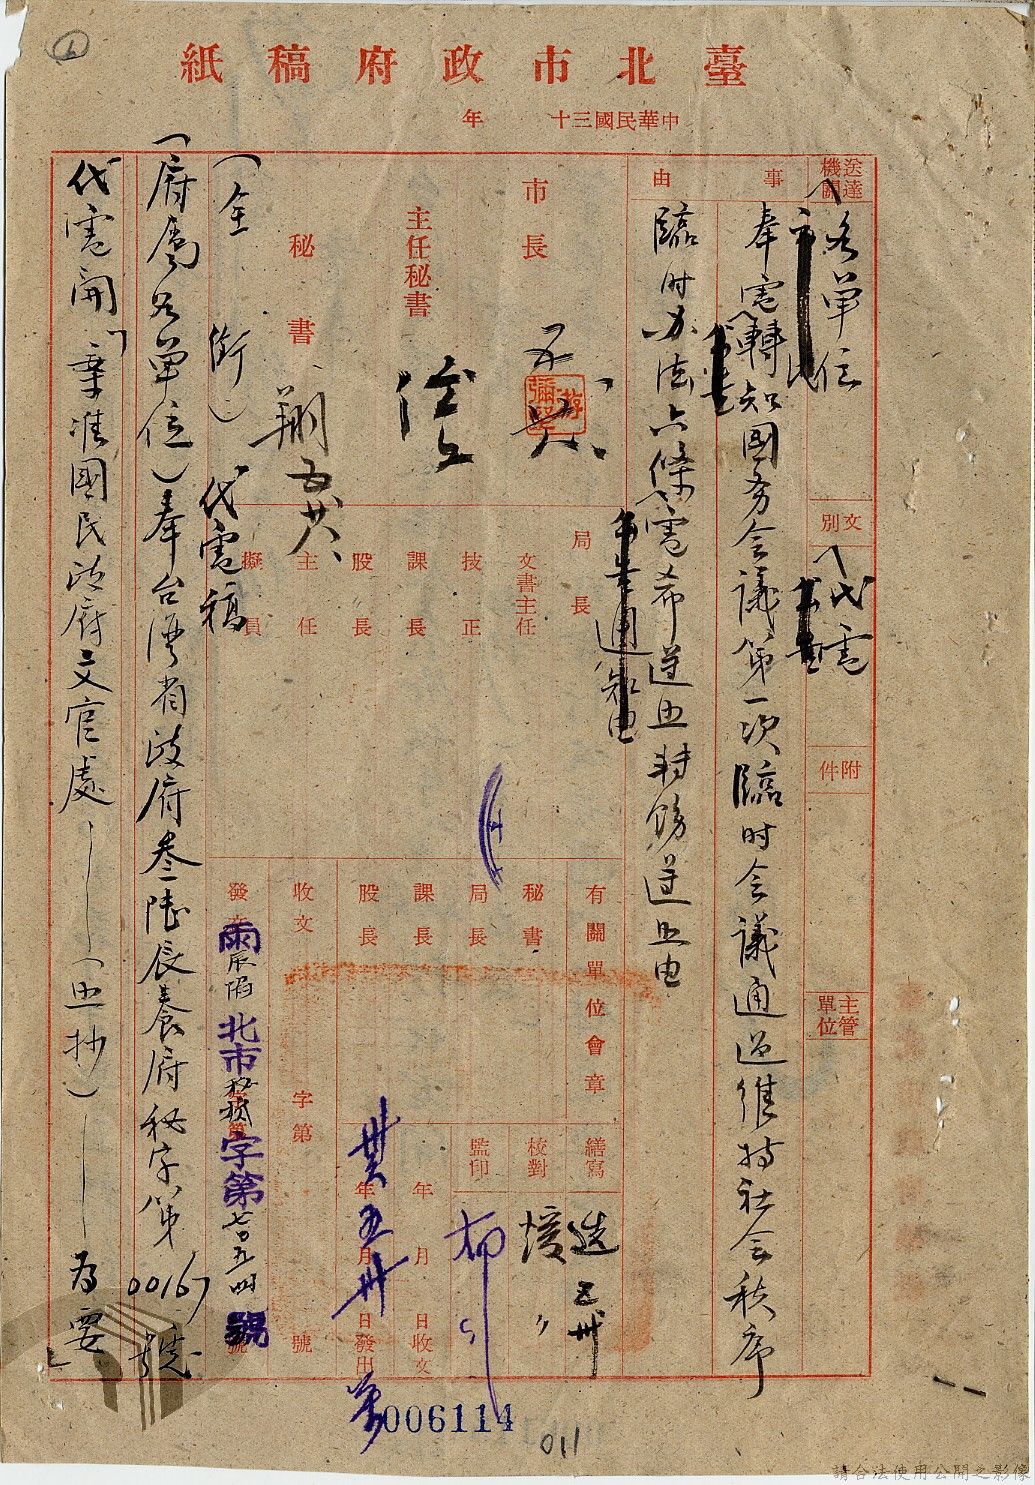 臺北市政府稿紙
中華民國三十 年
送達機關
各單位
文別
代電
附件
主管單位
事由
奉電轉知國务会議第一次臨时会議通過維持社会秩序
臨时办法六條電希遵照轉飭遵照由
市長
五 廿八
游彌堅
主任秘書
秘書
翔 五廿八
局長
文書主任
技正
課長
股長
主任
擬員
有關單位會章
秘書
局長
課長
股長
繕寫
校對
監印
五卅
柳
年 月 日收文
卅六年五月卅日發出
收文 字第 號
發文 雨辰陷北市秘 字第七〇五四號
(全銜)代電稿
(府屬各單位)奉台湾省政府叁陸辰養府秘字第00167號
代電開「案准國民政府文官處——(照抄)——為要」
006114
011
請合法使用公開之影像